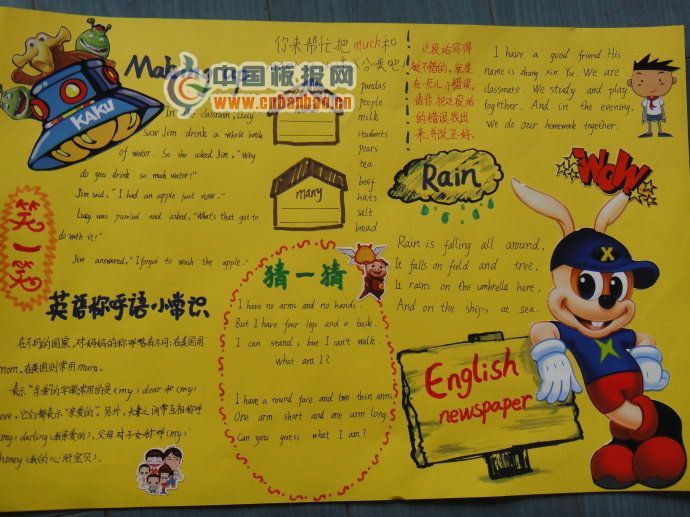 KAKU
中国板报网
www.cnbanbao.cn
In the classroom, Lucy
saw Jim drink a whole bottle
of water. So she asked Jim, "Why
do you drink so much water?"
Jim said, "I had an apple just now."
Lucy was puzzled and asked, "What's that got to
do with it?"
Jim answered, "I forgot to wash the apple."
笑一笑
你来帮忙把much和
分类吧!
many
pandas
people
milk
students
pears
tea
beef
hats
salt
bread
这段话写得
挺不错的,就是
有一点儿小错误,
请你把这段话
的错误找出
来,并改正好。
I have a good friend. His
name is zhang Xin Yu. We are
classmate. We study and play
together. And in the evening,
We do our homework together.
WOW
Rain
Rain is falling all around,
It falls on field and tree,
It rains on the umbrella here,
And on the ships at sea.
英语称呼语小常识
在不同的国家,对妈妈的称呼略有不同:在英国用
mum,在美国则常用mom.
表示"亲爱的"字眼常用的是(my) dear 和(my)
love,它们都表示"亲爱的"。另外,夫妻之间常互相称呼
(my) darling(我亲爱的),父母对子女称呼(my)
honey(我的心肝宝贝)。
猜一猜
I have no arms and no hands.
But I have four legs and a back.
I can stand, but I can't walk.
What am I?
I have a round face and two thin arms.
One arm short and one arm long.
Can you guess what I am?
X
English
newspaper